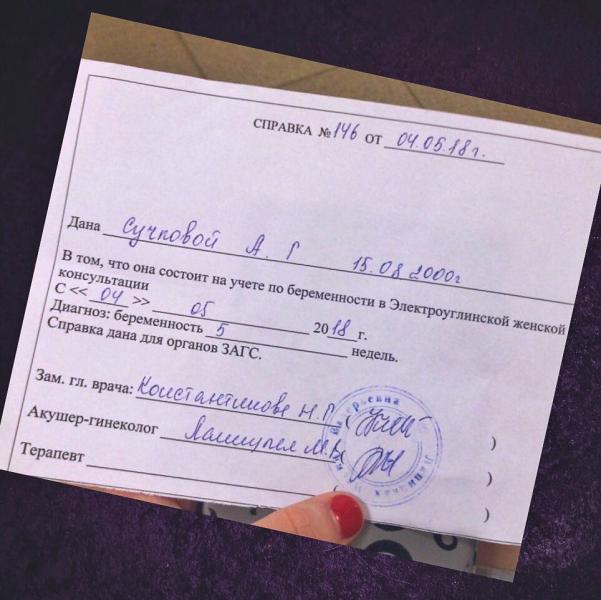 СПРАВКА №146 ОТ 04.05.18г.
Дана Сучповой А. Г 15.08 2000г
В том, что она состоит на учете по беременности в Электроуглинской женской
консультации
С << 04 >> 05 2018 г.
Диагноз: беременность 5 недель.
Справка дана для органов ЗАГС.
Зам. гл. врача: Константинове Н.Г (
Акушер-гинеколог М.В. )
Терапевт )